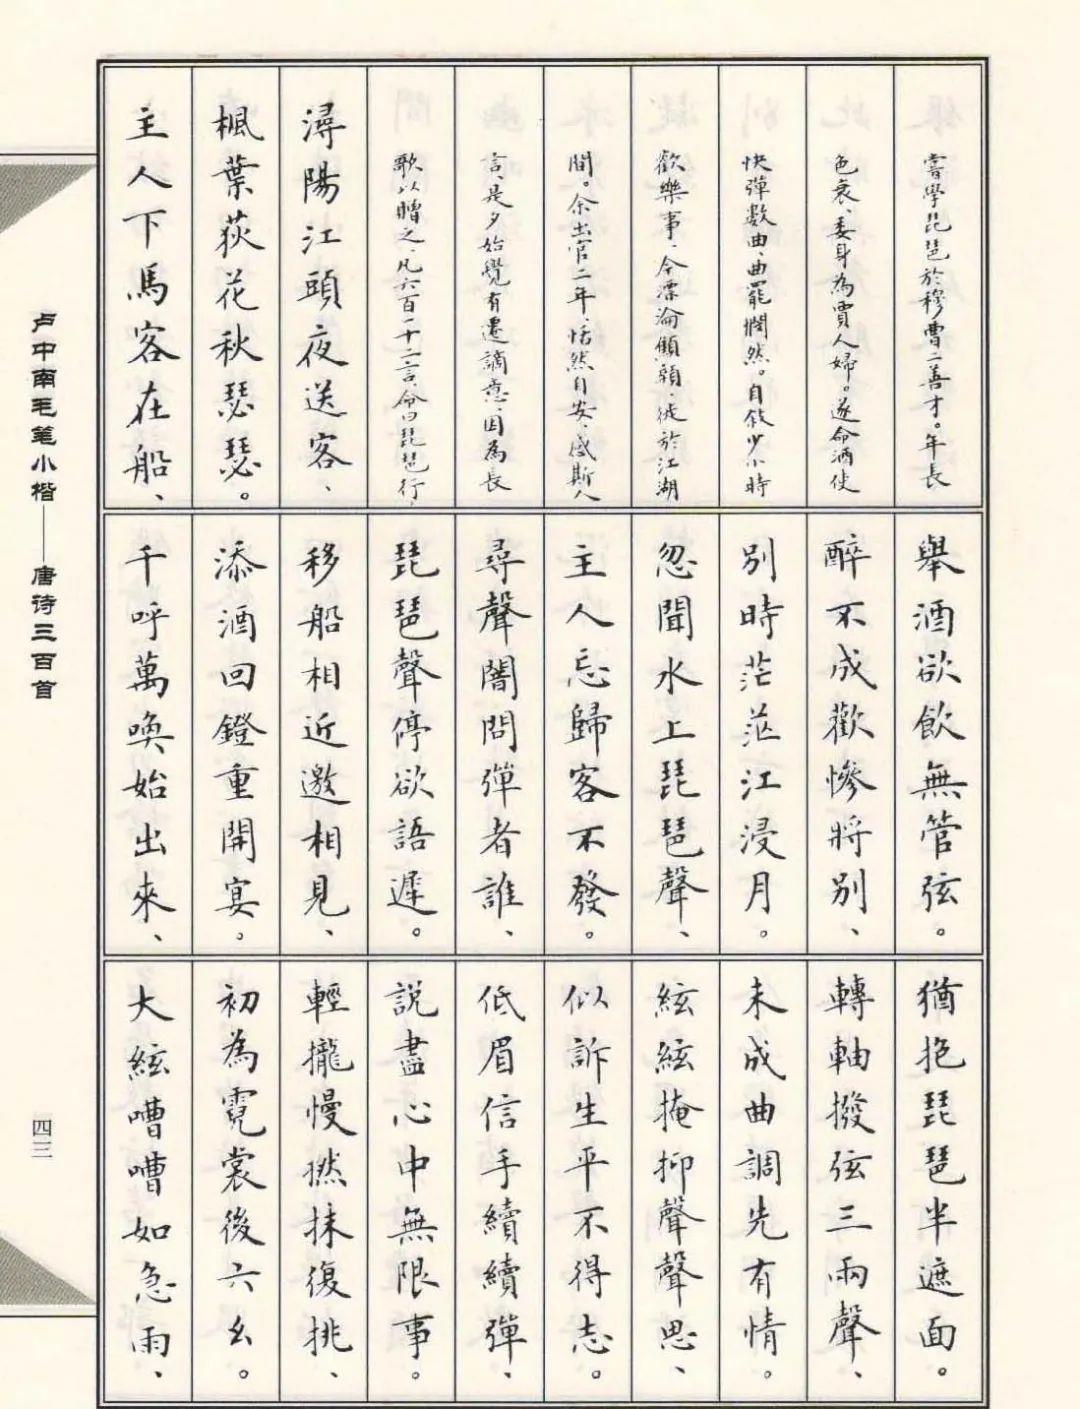 嘗學琵琶於穆曹二善才。年長
色衰、委身為賈人婦。遂命酒使
快彈數曲、曲罷憫然。自敘少小時
歡樂事、今漂淪顦顇、徙於江湖
間。余出官二年、恬然自安、感斯人
言、是夕始覺有遷謫意、因為長
歌以贈之、凡六百一十二言、命曰琵琶行、
潯陽江頭夜送客、
楓葉荻花秋瑟瑟。
主人下馬客在船、
舉酒欲飲無管弦。
醉不成歡慘將別、
別時茫茫江浸月。
忽聞水上琵琶聲、
主人忘歸客不發。
尋聲闇問彈者誰、
琵琶聲停欲語遲。
移船相近邀相見、
添酒回鐙重開宴。
千呼萬喚始出來、
猶抱琵琶半遮面。
轉軸撥弦三兩聲、
未成曲調先有情。
絃絃掩抑聲聲思、
似訴生平不得志。
低眉信手續續彈、
說盡心中無限事。
輕攏慢撚抹復挑、
初為霓裳後六幺。
大絃嘈嘈如急雨、
卢中南毛笔小楷——唐诗三百首
四三